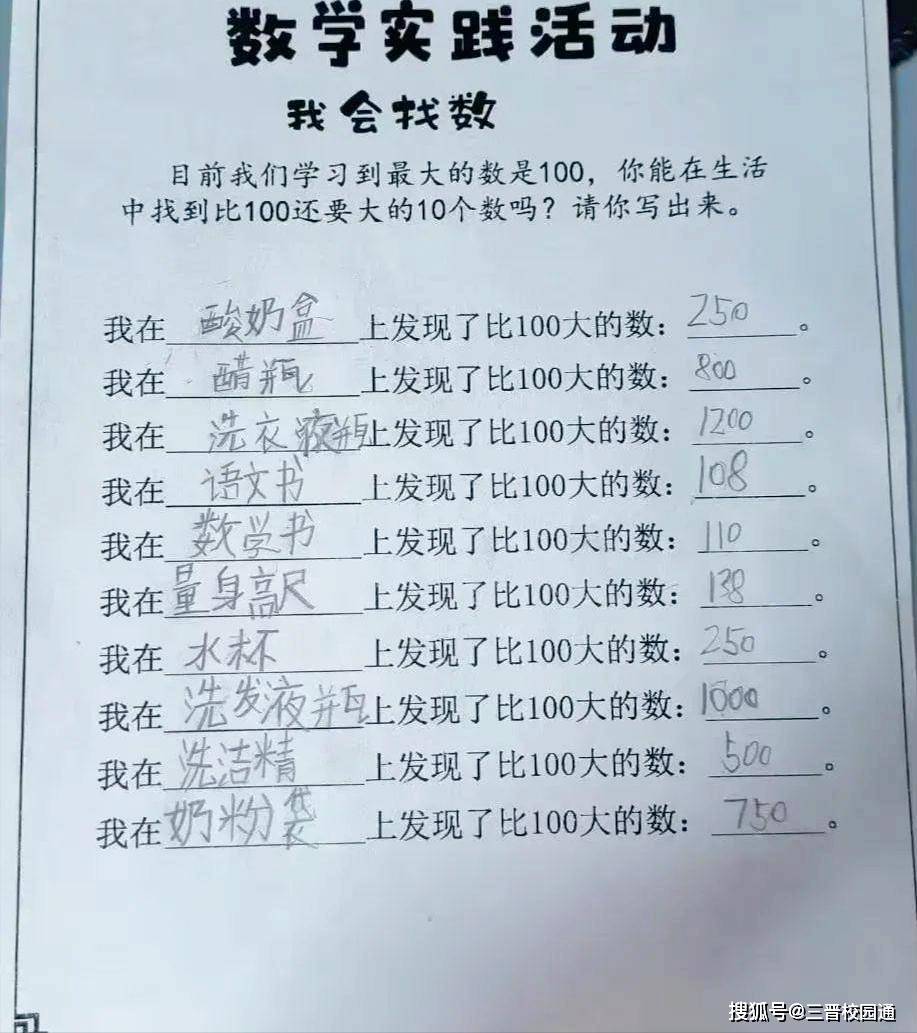 数学实践活动
我会找数
目前我们学习到最大的数是100，你能在生活
中找到比100还要大的10个数吗？请你写出来。
我在酸奶盒上发现了比100大的数：250。
我在醋瓶上发现了比100大的数：800。
我在洗衣液瓶上发现了比100大的数：1200。
我在语文书上发现了比100大的数：108。
我在数学书上发现了比100大的数：110。
我在量身高尺上发现了比100大的数：138。
我在水杯上发现了比100大的数：250。
我在洗发液瓶上发现了比100大的数：1000。
我在洗洁精上发现了比100大的数：500。
我在奶粉袋上发现了比100大的数：750。
搜狐号@三晋校园通